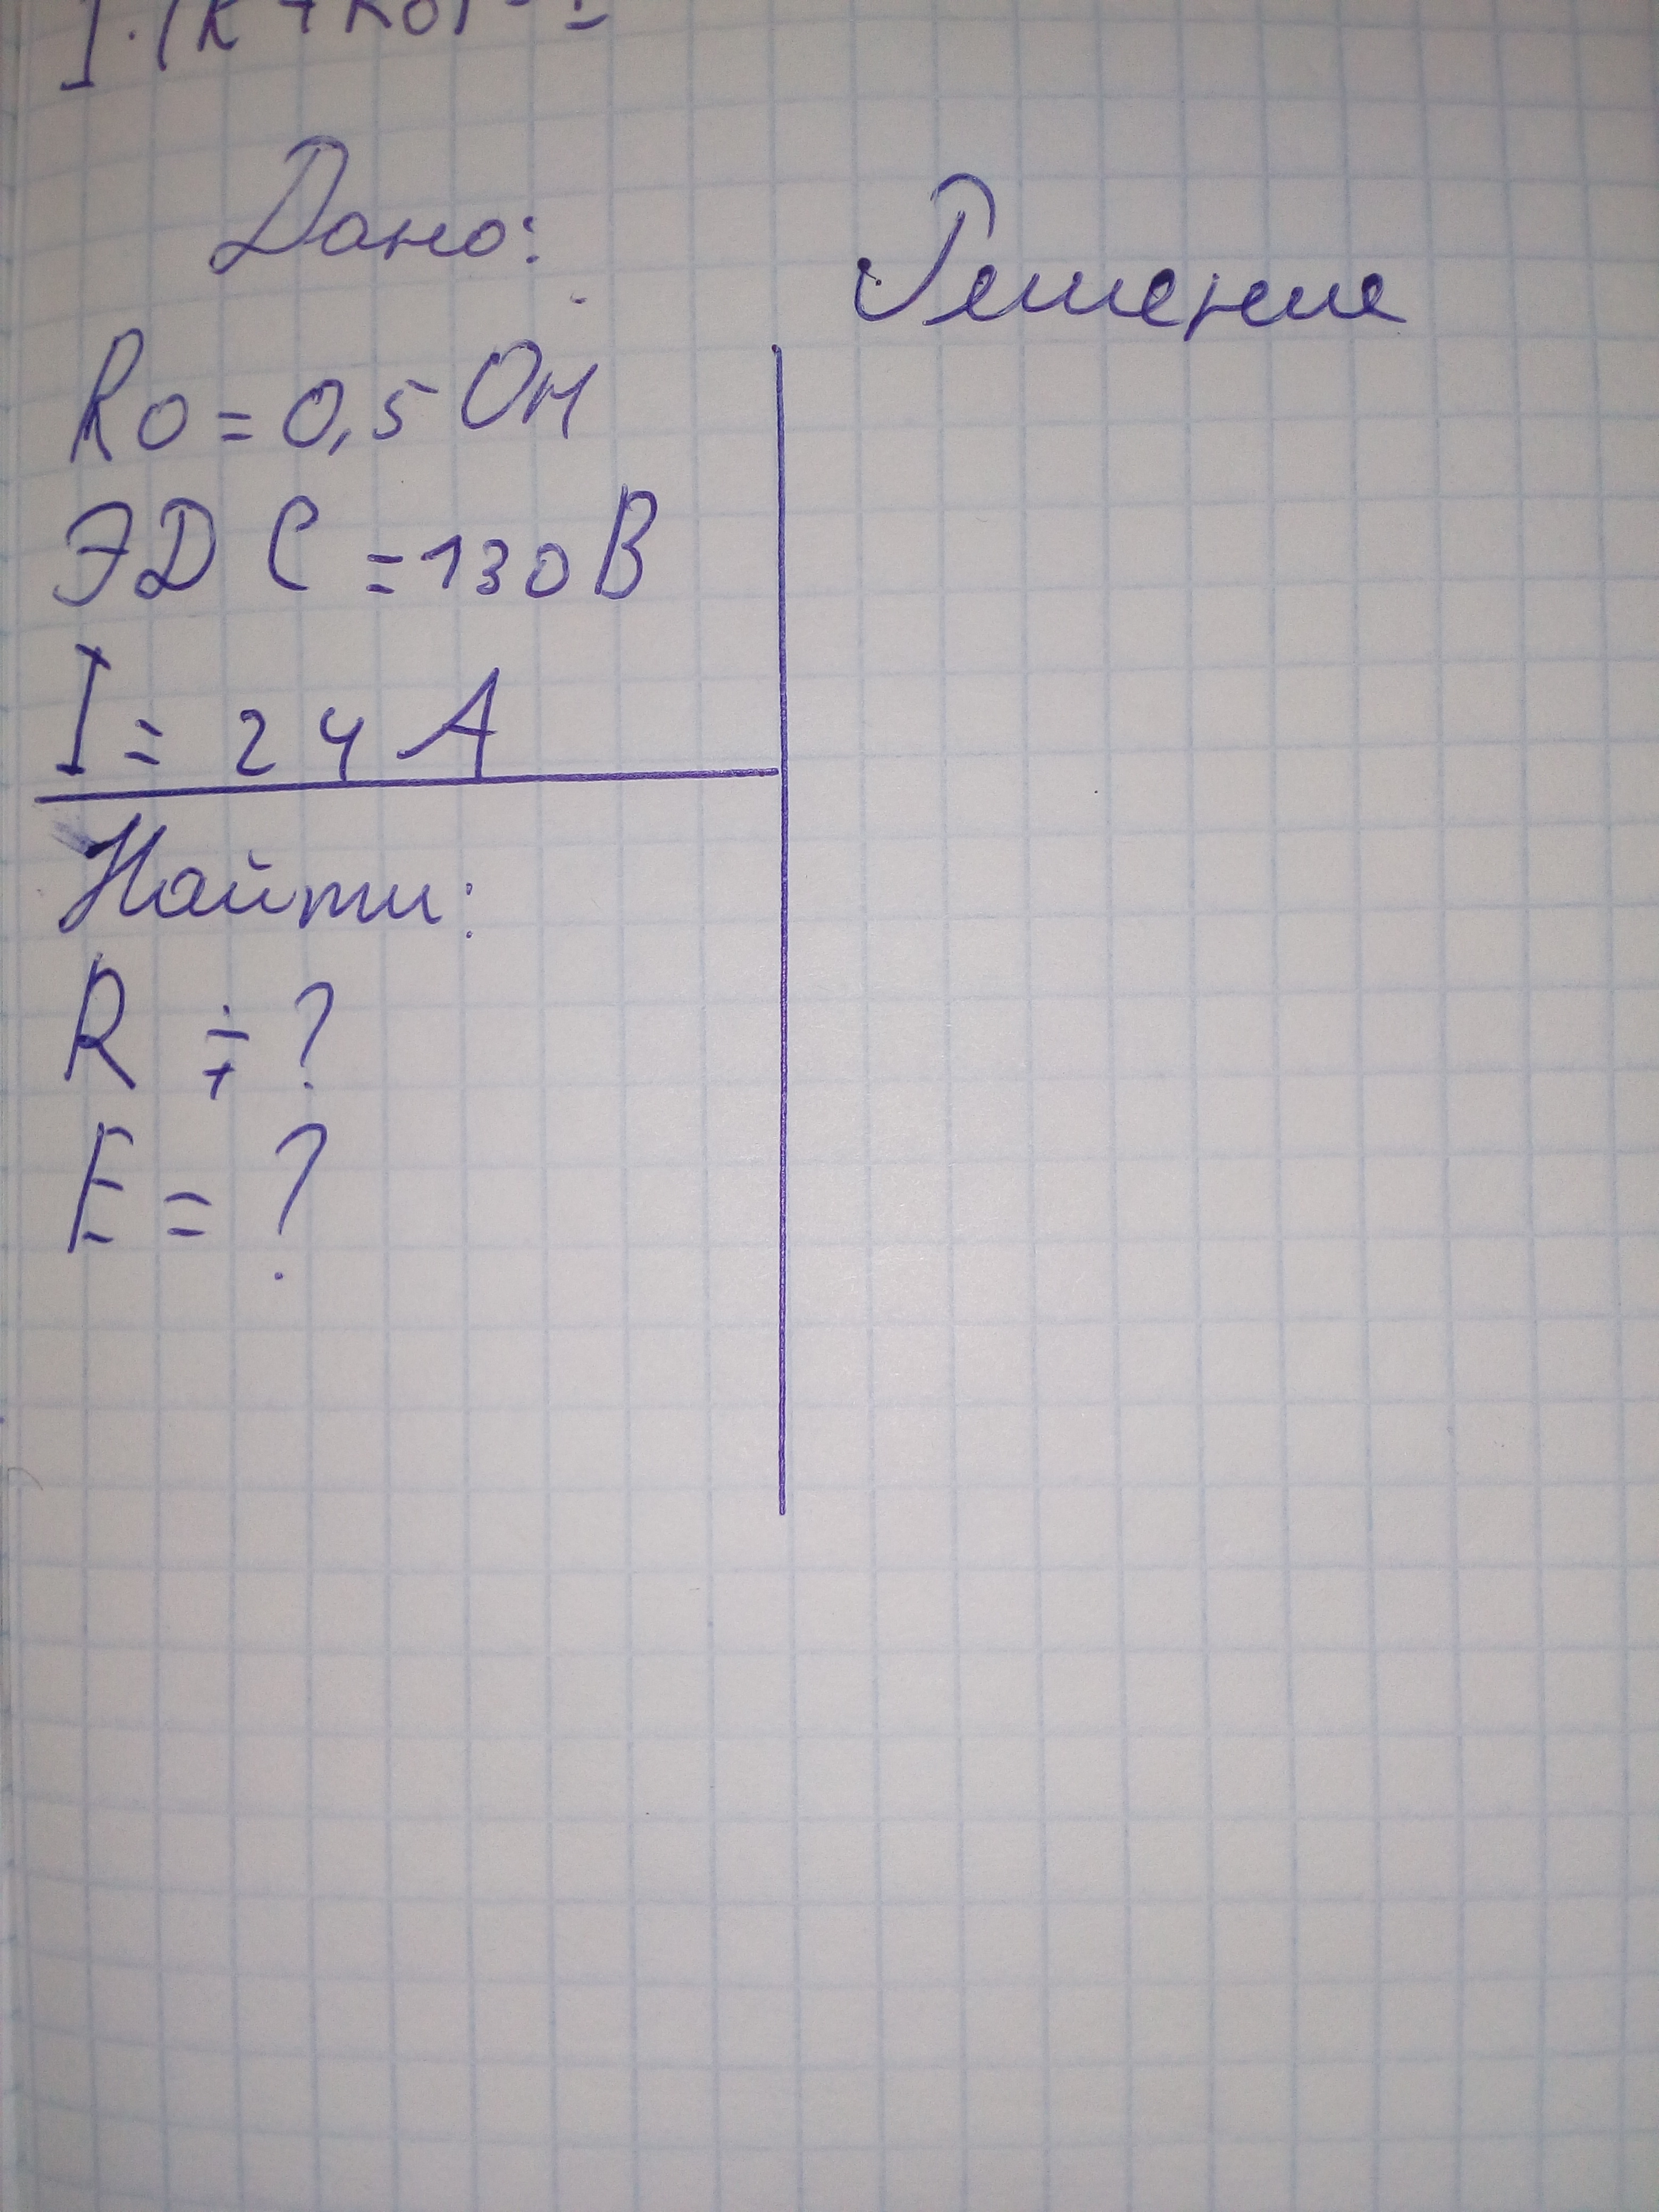 I·(R+R0)=
Дано:
Решение
R0=0,5 Ом
ЭДС =130В
I= 24 А
Найти:
R = ?
E = ?